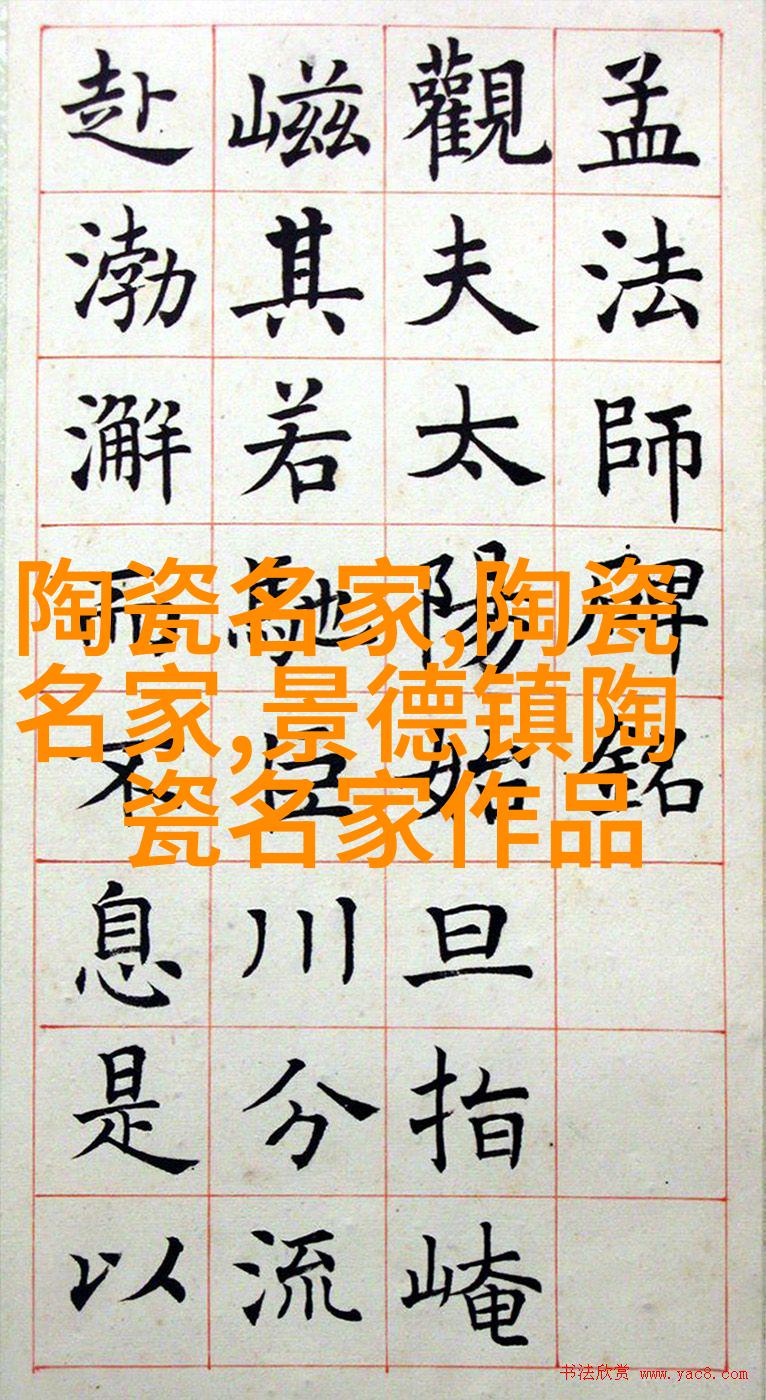 孟法師碑銘
觀夫太陽始旦指崦
嵫其若馳巨川分流
赴渤澥而不息是以
陶瓷名家,陶瓷
名家,景德镇陶
瓷名家作品
书法欣赏 www.yac8.com